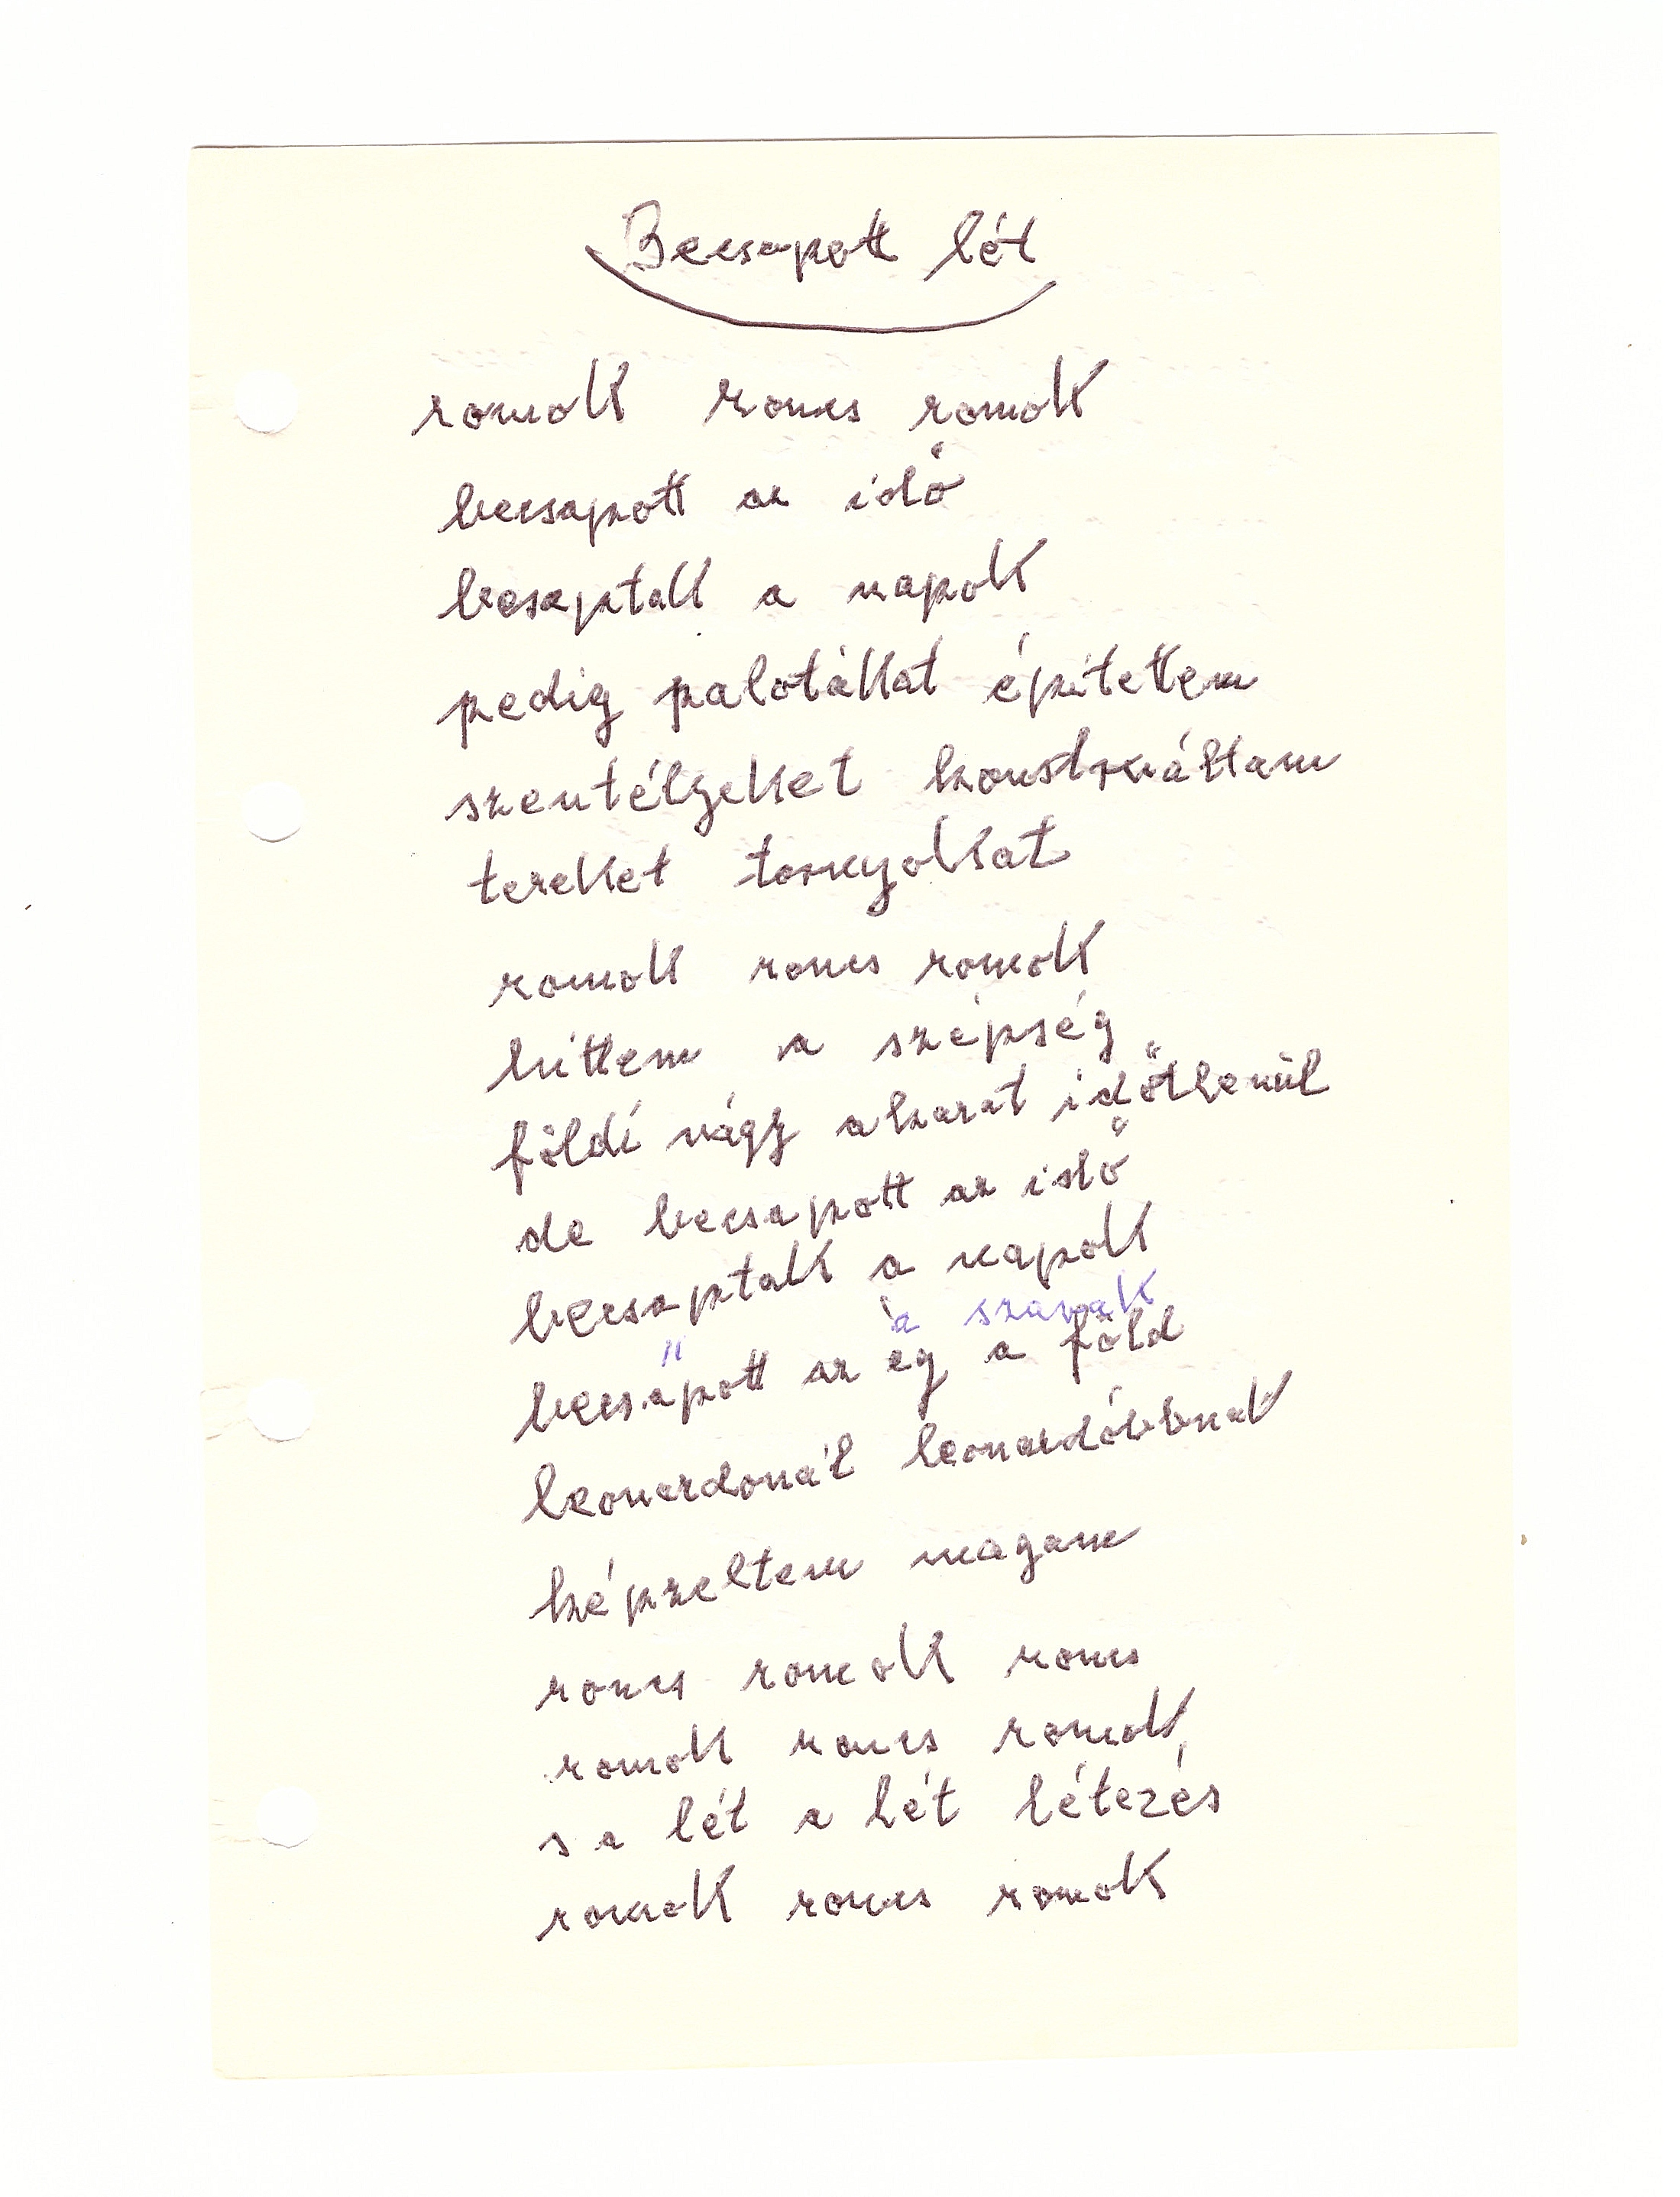 Becsapott lét
romok roncs romok
becsapott az idő
becsaptak a napok
pedig palotákat építettem
szentélyeket konstruáltam
tereket tornyokat
romok roncs romok
hittem a szépség
földi vágy akarat időtlenül
de becsapott az idő
becsaptak a napok
" a szavak
becsapott az ég a föld
leonardonál leonardóbbnak
képzeltem magam
roncs romok roncs
romok roncs romok
s a lét a lét létezés
romok roncs romok